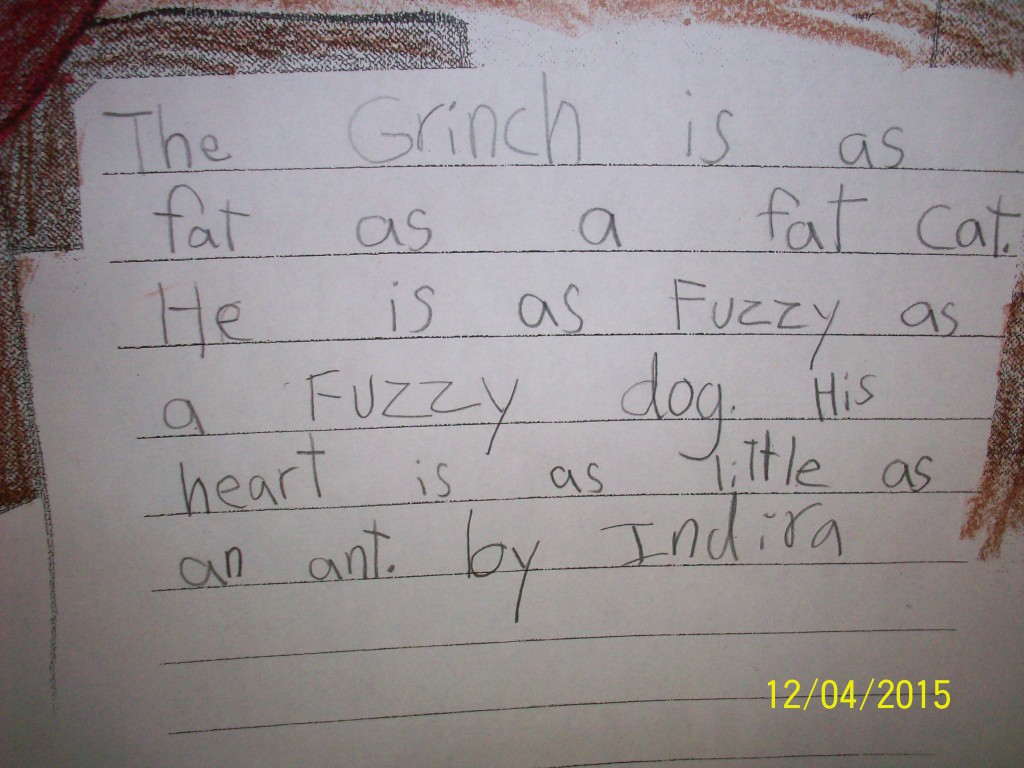 The Grinch is as
fat as a fat cat.
He is as Fuzzy as
a Fuzzy dog. His
heart is as little as
an ant. by Indira
12/04/2015